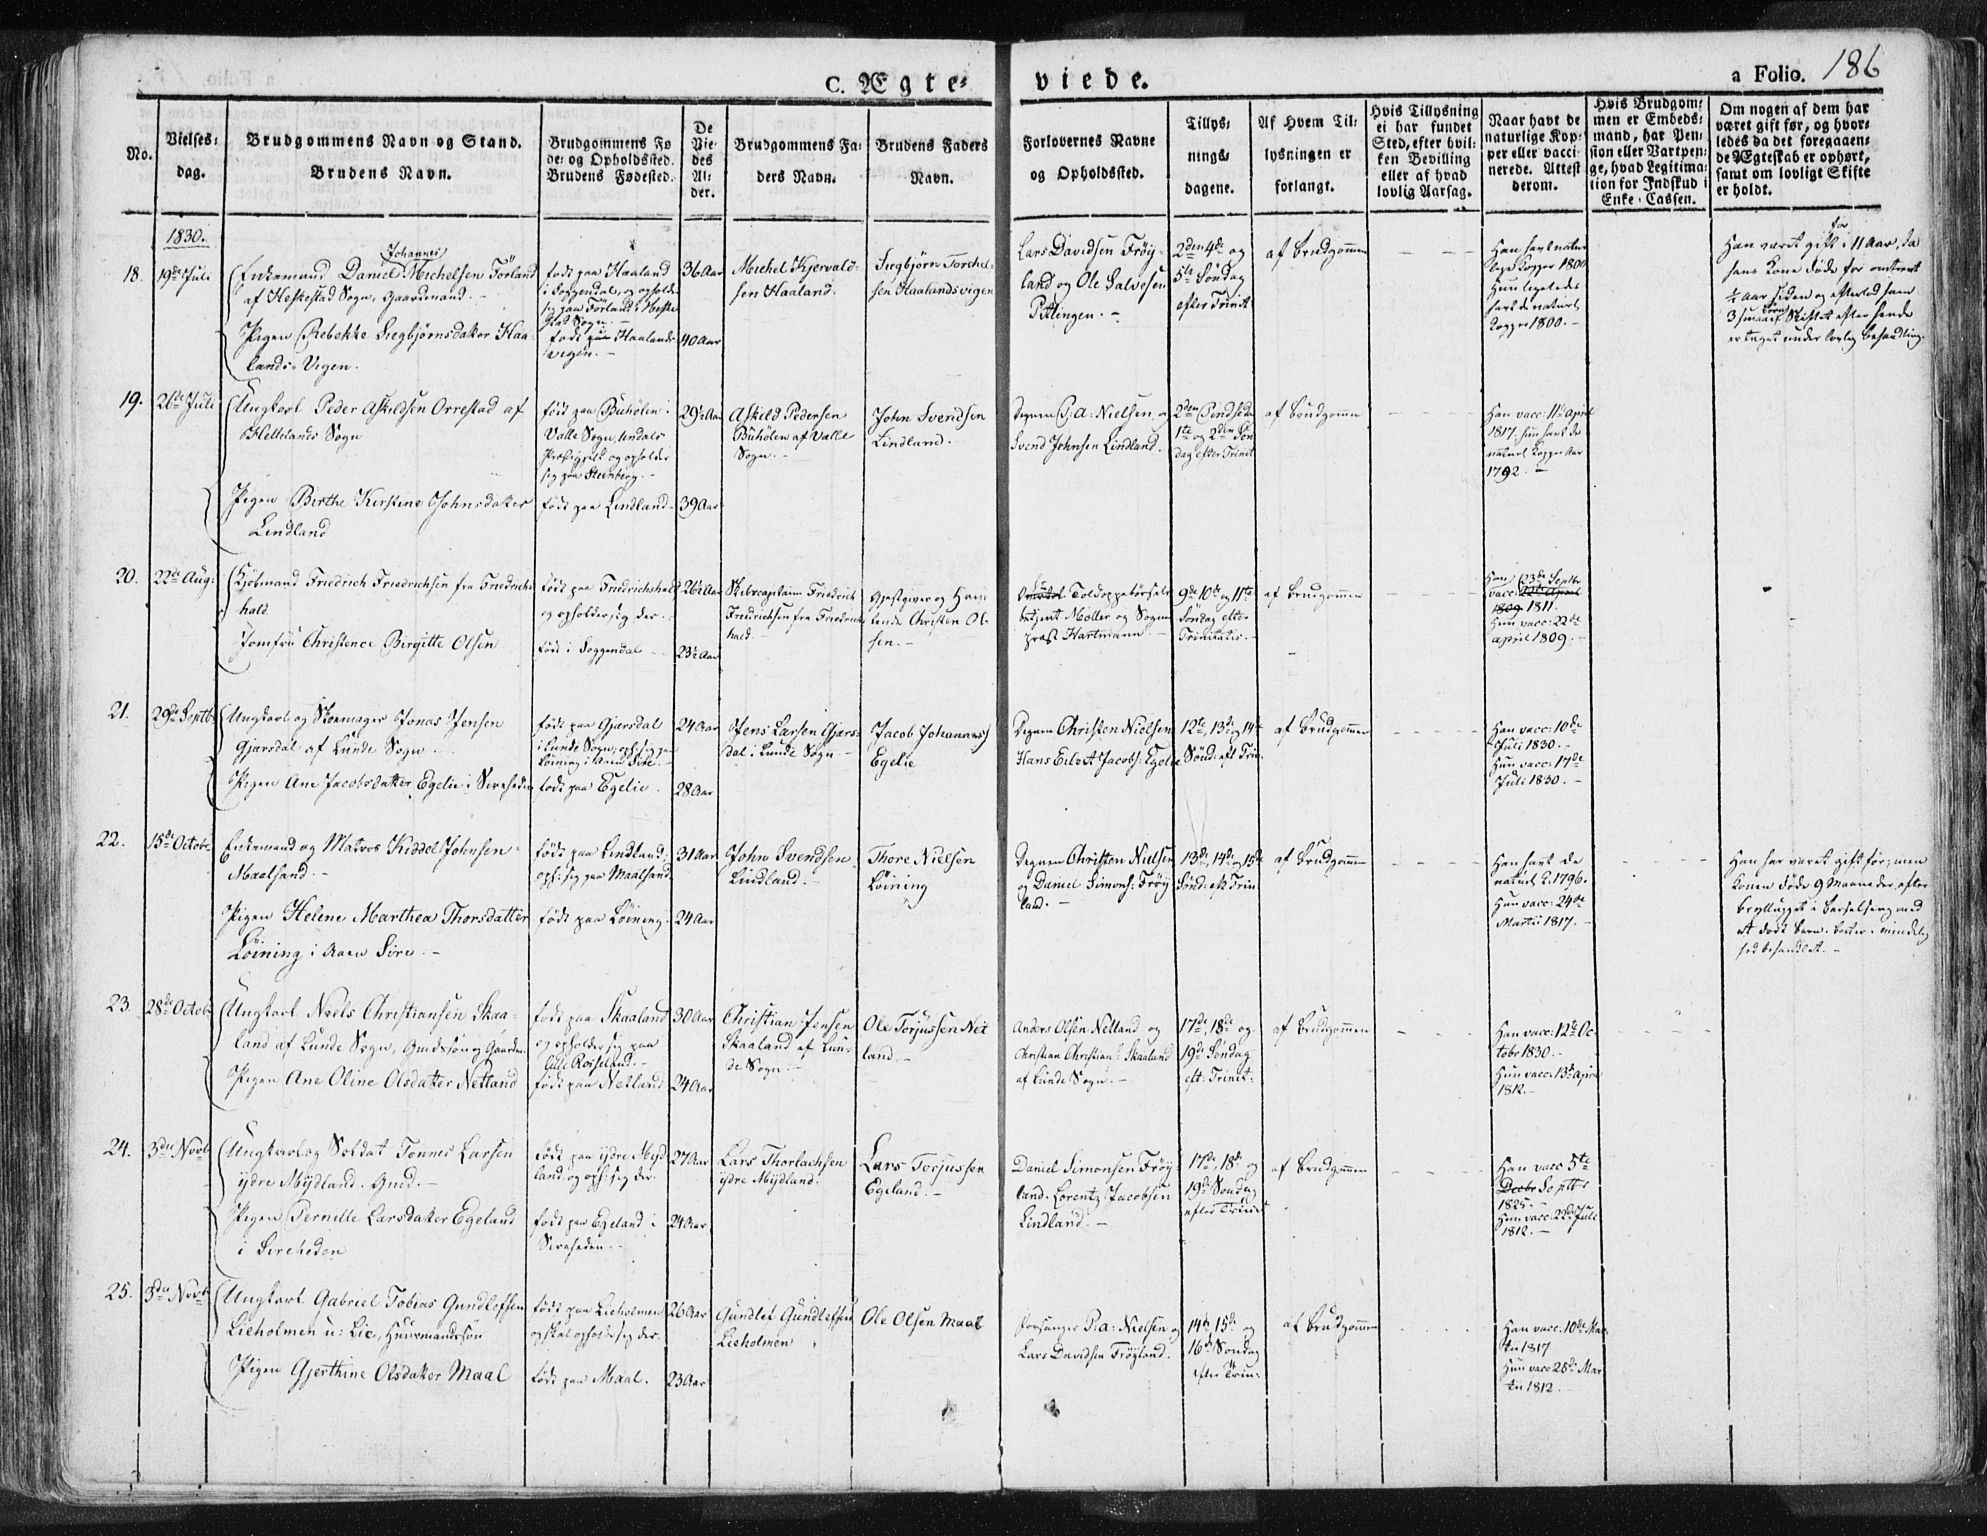 C. Ægte-
viede.
a Folio. 186
No.
Vielses-
dag.
Brudgommens Navn og Stand.
Brudens Navn.
Brudgommens Fø
de- og Opholdssted.
Brudens Fødested.
De
Vie-
des
Al-
der.
Brudgommens Fa-
ders Navn.
Brudens Faders
Navn.
Forlovernes Navne
og Opholdssted.
Tillys-
nings-
dagene.
Af Hvem Til-
lysningen er
forlangt.
Hvis Tillysning
ei har fundet
Sted, efter hvil-
ken Bevilling
eller af hvad
lovlig Aarsag.
Naar havt de
naturlige Kop-
per eller vacci
nerede. Attest
derom.
Hvis Brudgom-
men er Embeds-
mand, har Pen-
sion eller Vartpen-
ge, hvad Legitima-
tion for Indskud i
Enke-Cassen.
Om nogen af dem har
været gift før, og hvor-
ledes da det foregaaen-
de Ægteskab er ophørt,
samt om lovligt Skifte
er holdt.
1830.
18. 19de Juli
Johannes
Enkemand Daniel Michelsen Förland
af Heskestad Sogn, Gaardmand. -
Pigen Rebekke Siegbjörnsdatter Haa-
lands-Vigen.
födt paa Haaland
i Soggendal, og opholder
sig paa Förland i Heske
stad Sogn. -
födt paa Haalands
vigen. -
36 Aar
40 Aar
Michel Kjervald-
sen Haaland.
Siegbjörn Torchel-
sen Haalandsvigen
Lars Davidsen Fröy-
land og Ole Salvesen
Pittingen. -
2den 4de og
5te Söndag
efter Trinit
af Brudgommen
Han havt natur
lige Kopper 1800
Hun ligeledes
havt de naturl
Kopper 1800. -
för
Han været gift i 11 Aar, da
hans Kone döde for omtrent
1/2 Aar siden og efterlod ham
3 smaae Börn Skiftet efter hende
er taget under lovlig behandling.
19. 26de Juli
Ungkarl Peder Askildsen Orrestad af
Hellelands Sogn
Pigen Birthe Kirstine Johnsdatter
Lindland
födt paa Buhölen i
Valle Sogn, Undals
Præstegield og opholder
sig paa Steenberg. -
födt paa Lindland -
29 1/2 Aar
39 Aar
Askild Pedersen
Buhölen af Valle
Sogn. -
John Svendsen
Lindland. -
Degnen P: A: Nielsen og
Svend Johnsen Lindland.
2den Pindsedag
1te og 2den Sön
dag efter Trinit
af Brudgommen
Han vacc: 11te April
1817. hun havt de
naturl Kopper Aar
1792. -
20. 22de Aug:
Kjöbmand Friedrich Friedrichsen fra Friedrichs
hald
Jomfru Christence Birgitte Olsen
födt paa Friedrichshald
og opholder sig der. -
födt i Soggendal -
26 1/2 Aar
23 1/2 Aar
Skibscapitain Friedrich
Friedrichsen fra Friedrichs
hald -
Gjestgiver og Han
lende Christen Ol-
sen. -
Toldoppebörsels
betjent Möller og Sogne
præst Hartmann. -
9de 10de og 11te
Söndag efter
Trinitatis. -
af Brudgommen
Han 23de Septbr
vacc: 22de April
1809 1811.
Hun vacc: 22de
april 1809. -
21. 29de Septb
Ungkarl og Skoemager Jonas Jensen
Gjarsdal af Lunde Sogn. -
Pigen Ane Jacobsdatter Egelie i Sireheden
födt paa Gjarsdal
i Lunde Sogn, oph: sig paa
Löining i Aaen Sire. -
födt paa Egelie.
24 Aar
28 Aar
Jens Larsen Gjars-
dal i Lunde Sogn -
Jacob Johannes:
Egelie
Degnen Christen Nielsen
Hans Eilert Jacobs: Egelie
12te, 13de og 14de
Sönd: eft Trin:
af Brudgommen
Han vacc: 10de
Juli 1830. -
Hun vacc: 17de
Juli 1830. -
22. 15de Octobr
Enkemand og Matros Kiddel Johnsen
Maalsand. -
Pigen Helene Marthea Thorsdatter
Löining i Aaen Sire. -
födt paa Lindland;
oph: sig paa Maalsand
födt paa Löining. -
31 Aar
24 Aar
John Svendsen
Lindland. -
Thore Nielsen
Löining
Degnen Christen Nielsen
og Daniel Simons: Fröy
land. -
13de, 14de og 15de
Sönd: eft Trin:
af Brudgommen
Han havt de
naturl K. 1796.
Hun vacc: 24de
Martii 1817. -
Han har været gift för; men
Konen döde 9 Maaneder efter
brylluppet i Barselseng med
et dödt Barn. Boet er i mindelig
hed behandlet. -
23. 28de Octob
Ungkarl Niels Christiansen Skaa-
land af Lunde Sogn, Gmdssön og Gaardm.
Pigen Ane Oline Olsdatter Netland
födt paa Skaaland
og opholder sig paa
Lille Rosseland. -
födt paa Netland
30 Aar
24 Aar
Christian Jensen
Skaaland af Lun-
de Sogn -
Ole Torjussen Net
land. -
Anders Olsen Netland og
Christian Christians: Skaaland
af Lunde Sogn. -
17de, 18de og
19de Söndag
eft: Trinit:
af Brudgommen
Han vacc: 12te Oc-
tobr 1830. -
Hun vacc: 13de April
1812. -
24. 3die Novb
Ungkarl og Soldat Tönnes Larsen
ydre Mydland. Gmd. -
Pigen Pernille Larsdatter Egeland
i Sireheden
Födt paa ydre Myd
land og oph: sig der.
födt paa Egeland i
Sireheden. -
27 Aar
24 Aar
Lars Thorlachsen
ydre Mydland.
Lars Torjussen
Egeland. -
Daniel Simonsen Fröy-
land. Lorentz Jacobsen
Lindland. -
17de, 18de og
19de Söndag
efter Trinit
af Brudgommen
Han vacc 5te
Decbr Septbr
1825. -
Hun vacc: 22de Juli
1812. -
25. 3die Novb
Ungkarl Gabriel Tobias Gundlefsen
Lieholmen u: Lie, Huusmandssön
Pigen Gjerthine Olsdatter Maal
födt paa Lieholmen
og skal opholde sig der.
födt paa Maal.
26 Aar
23 Aar
Gundlef Gundlefsen
Lieholmen
Ole Olsen Maal
Forsanger P: A: Nielsen og
Lars Davidsen Fröyland.
14de, 15de og
16de Söndag
efter Trin:
af Brudgommen
Han vacc: 10de Mar
tii 1817
Hun vacc 28de Mar
tii 1812.